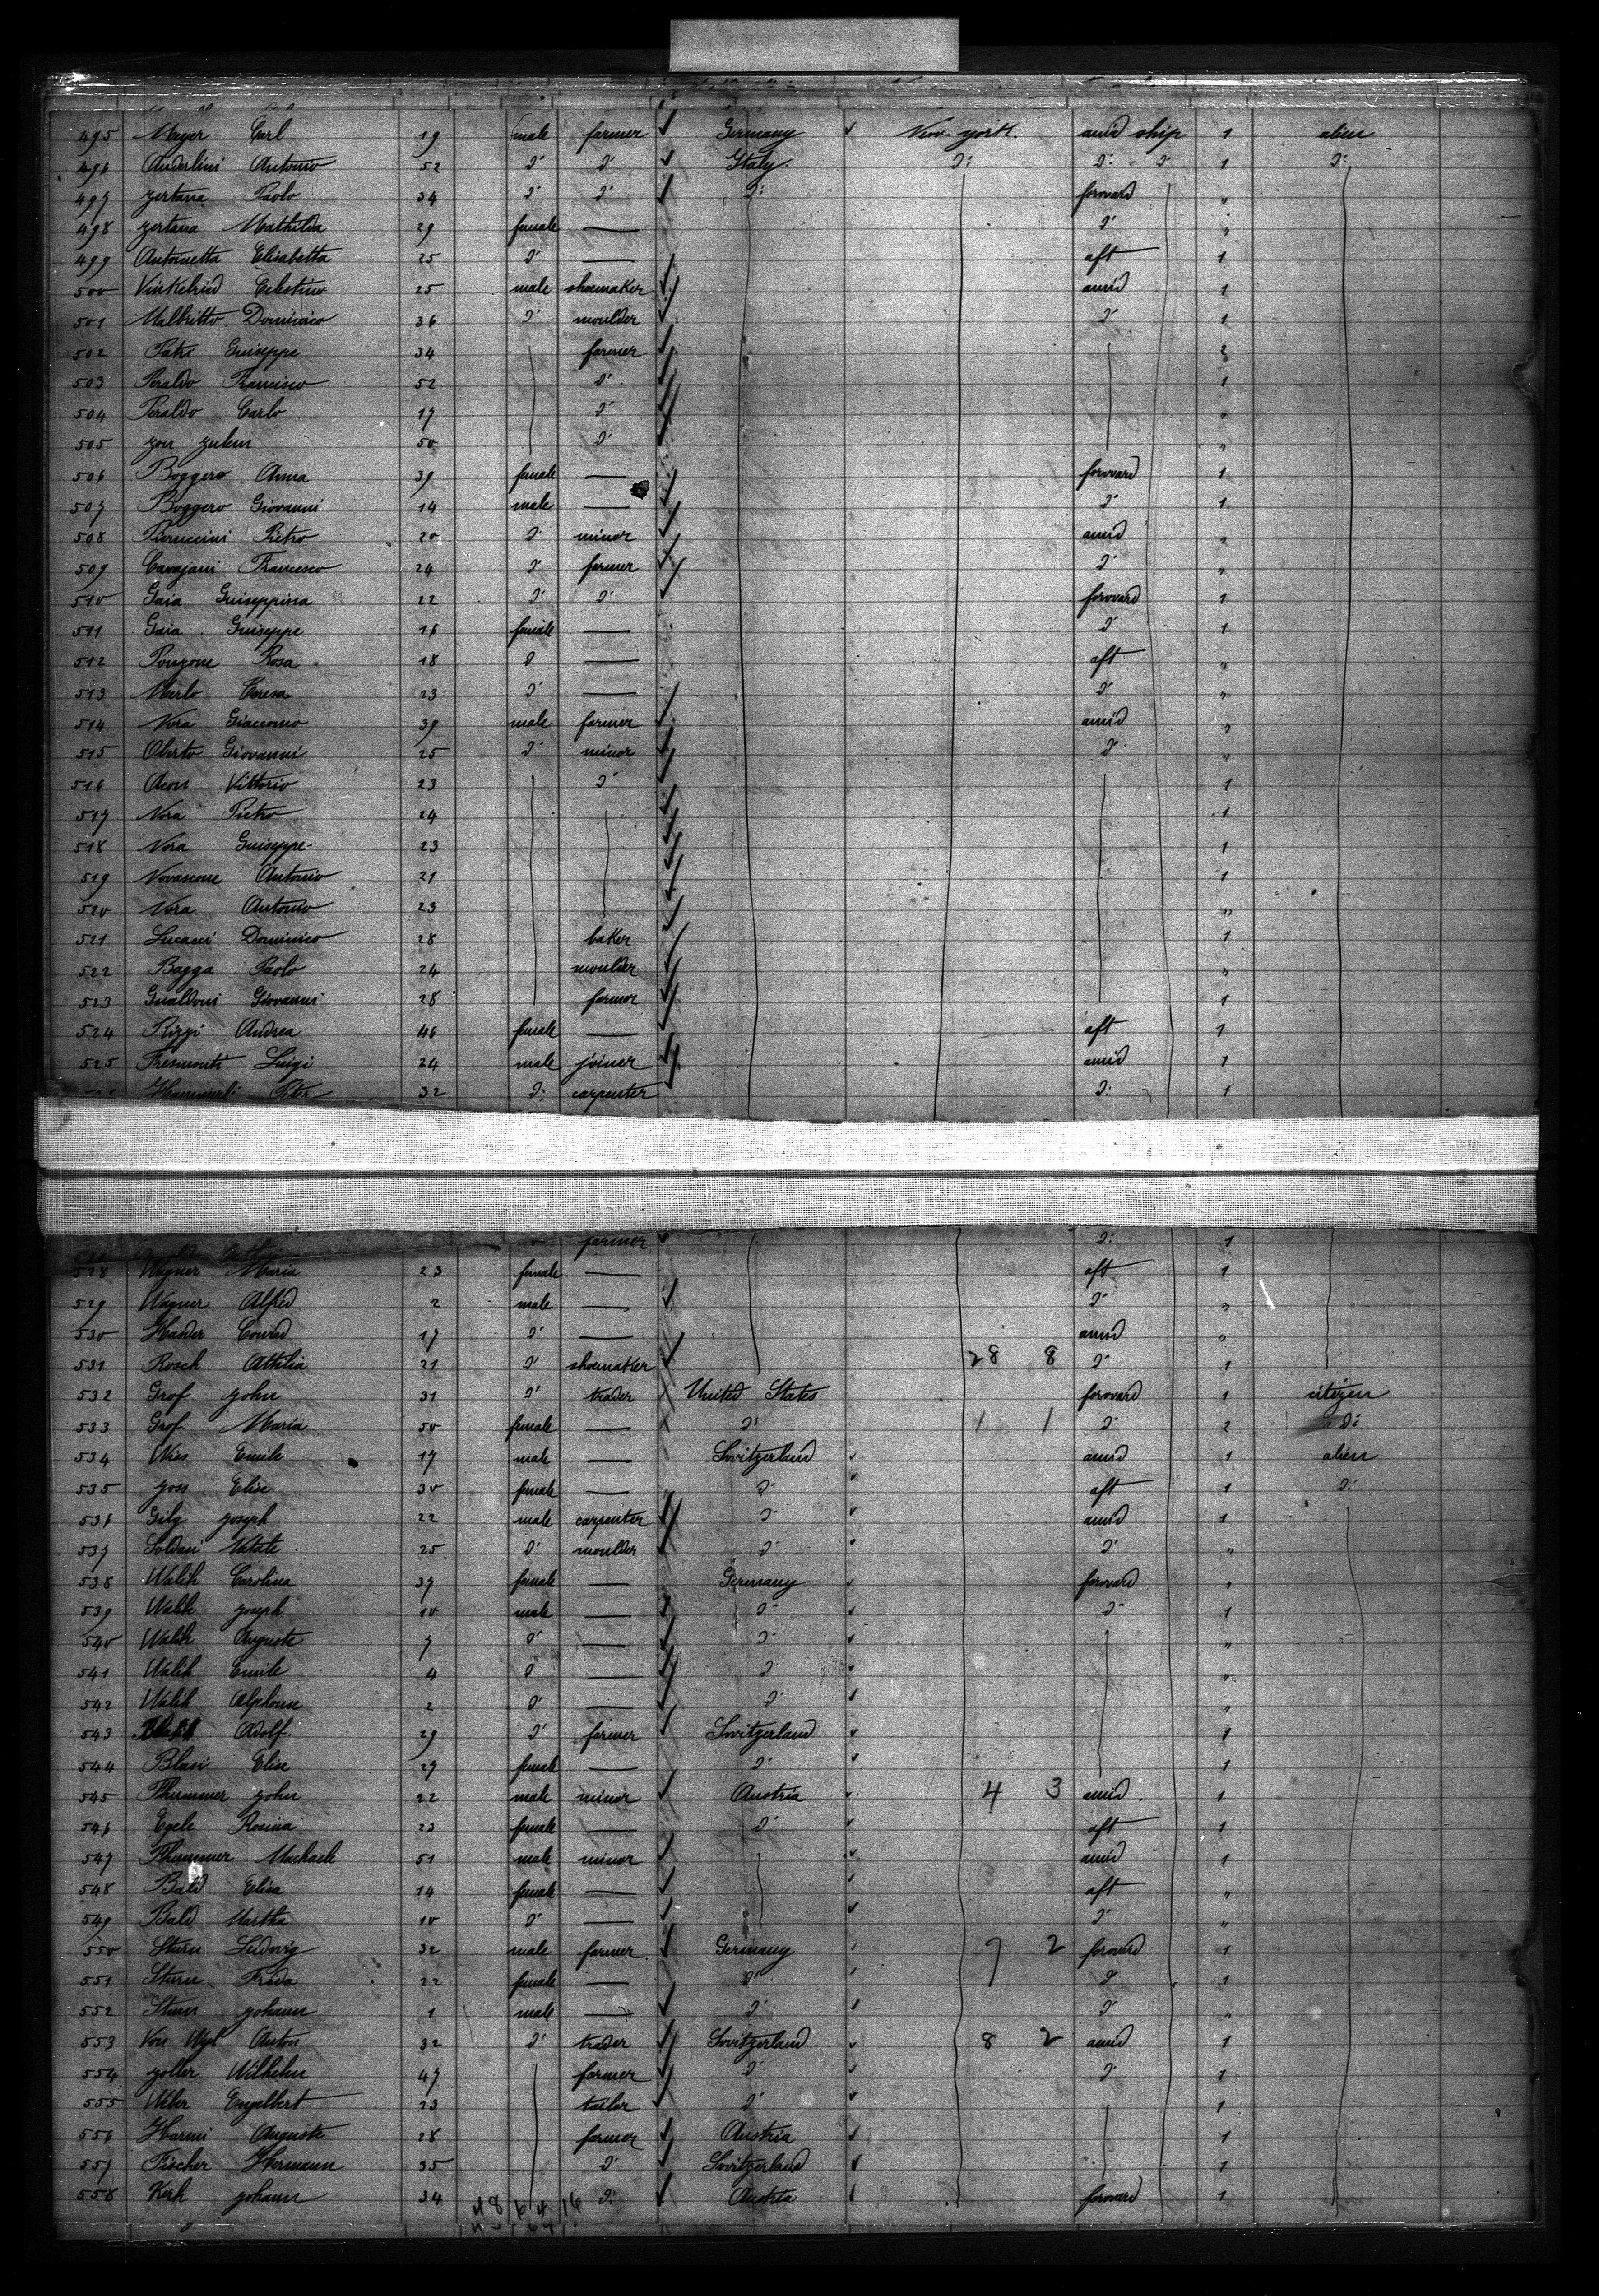 495 Mayer Carl 19 male farmer Germany New-york amid ship 1 alien
496 Anderlini Antonio 52 d° d° Italy d° d° d° 1 d°
497 zertana Paolo 34 d° d° d° forward "
498 zertana Mathilda 29 female — d° "
499 Antoinetta Elisabetta 25 d° — aft 1
500 Vinkelried Celestino 25 male shoemaker amid 1
501 Malbritto Dominico 36 d° moulder d° 1
502 Patri Guiseppe 34 farmer 2
503 Peraldo Francisco 52 d° 1
504 Peraldo Carlo 17 d° "
505 50 d° "
506 Boggero Anna 39 female — forward 1
507 Boggero Giovanni 14 male — d° 1
508 Perruccini Pietro 20 d° minor amid "
509 Cavajani Francesco 24 d° farmer d° "
510 Gaia Guiseppina 22 d° d° forward 1
511 Gaia Guiseppe 16 female — d° 1
512 Pougone Rosa 18 d° — aft "
513 Merlo Teresa 23 d° — d° "
514 Nora Giacomo 39 male farmer amid "
515 Oberto Giovanni 25 d° minor d° "
516 Acon Vittorio 23 d° 1
517 Nora Pietro 24 1
518 Nora Guiseppe 23 1
519 Novascone Antonio 21 1
520 Nora Antonio 23 "
521 Lucasci Dominico 28 baker 1
522 Bagga Paolo 24 moulder "
523 Gualdoni Giovanni 28 farmer 1
524 Rizzi Andrea 46 female — aft 1
525 Tresmonti Luigi 24 male joiner amid 1
Hammerli Peter 32 d° carpenter d° 1
farmer d° 1
528 Wagner Maria 23 female — aft 1
529 Wagner Alfred 2 male — d° "
530 Hasder Conrad 17 d° — amid "
531 Rosch Attilia 21 d° shoemaker 28 8 d° 1
532 Grof john 31 d° trader United States forward 1 citizen
533 Grof Maria 50 female — d° 1 1 d° 2 d°
534 Wies Emile 17 male — Switzerland amid 1 alien
535 joss Elise 30 female — d° aft 1 d°
536 Gilg joseph 22 male carpenter d° amid 1
537 Soldati Natale 25 d° moulder d° d° "
538 Walik Carolina 37 female — Germany forward "
539 Walik joseph 10 male — d° d° 1
540 Walik Auguste 7 d° — d° "
541 Walik Emile 4 d° — d° "
542 Walik Alphonse 2 d° — d° "
543 Adolf 29 d° farmer Switzerland 1
544 Blasi Elise 27 female — d° 1
545 Thummer john 22 male minor Austria 4 3 amid 1
546 Egele Rosina 23 female — d° aft 1
547 Thummer Machaele 51 male minor amid 1
548 Bald Elisa 14 female — aft "
549 Bald Martha 10 d° — d° "
550 Sturn Ludovig 32 male farmer Germany 7 2 forward 1
551 Sturn Frida 22 female — d° d° 1
552 Sturn johann 1 male — d° d° "
553 Von Wyl Anton 32 d° trader Switzerland 8 2 amid 1
554 zoller Wilhelm 47 farmer d° d° 1
555 Weber Engelbert 23 tailor d° 1
556 Harmi Auguste 28 farmer Austria 1
557 Fischer Hermann 35 d° Switzerland 1
558 Kerk johann 34 d° Austria forward 1
48 64 16